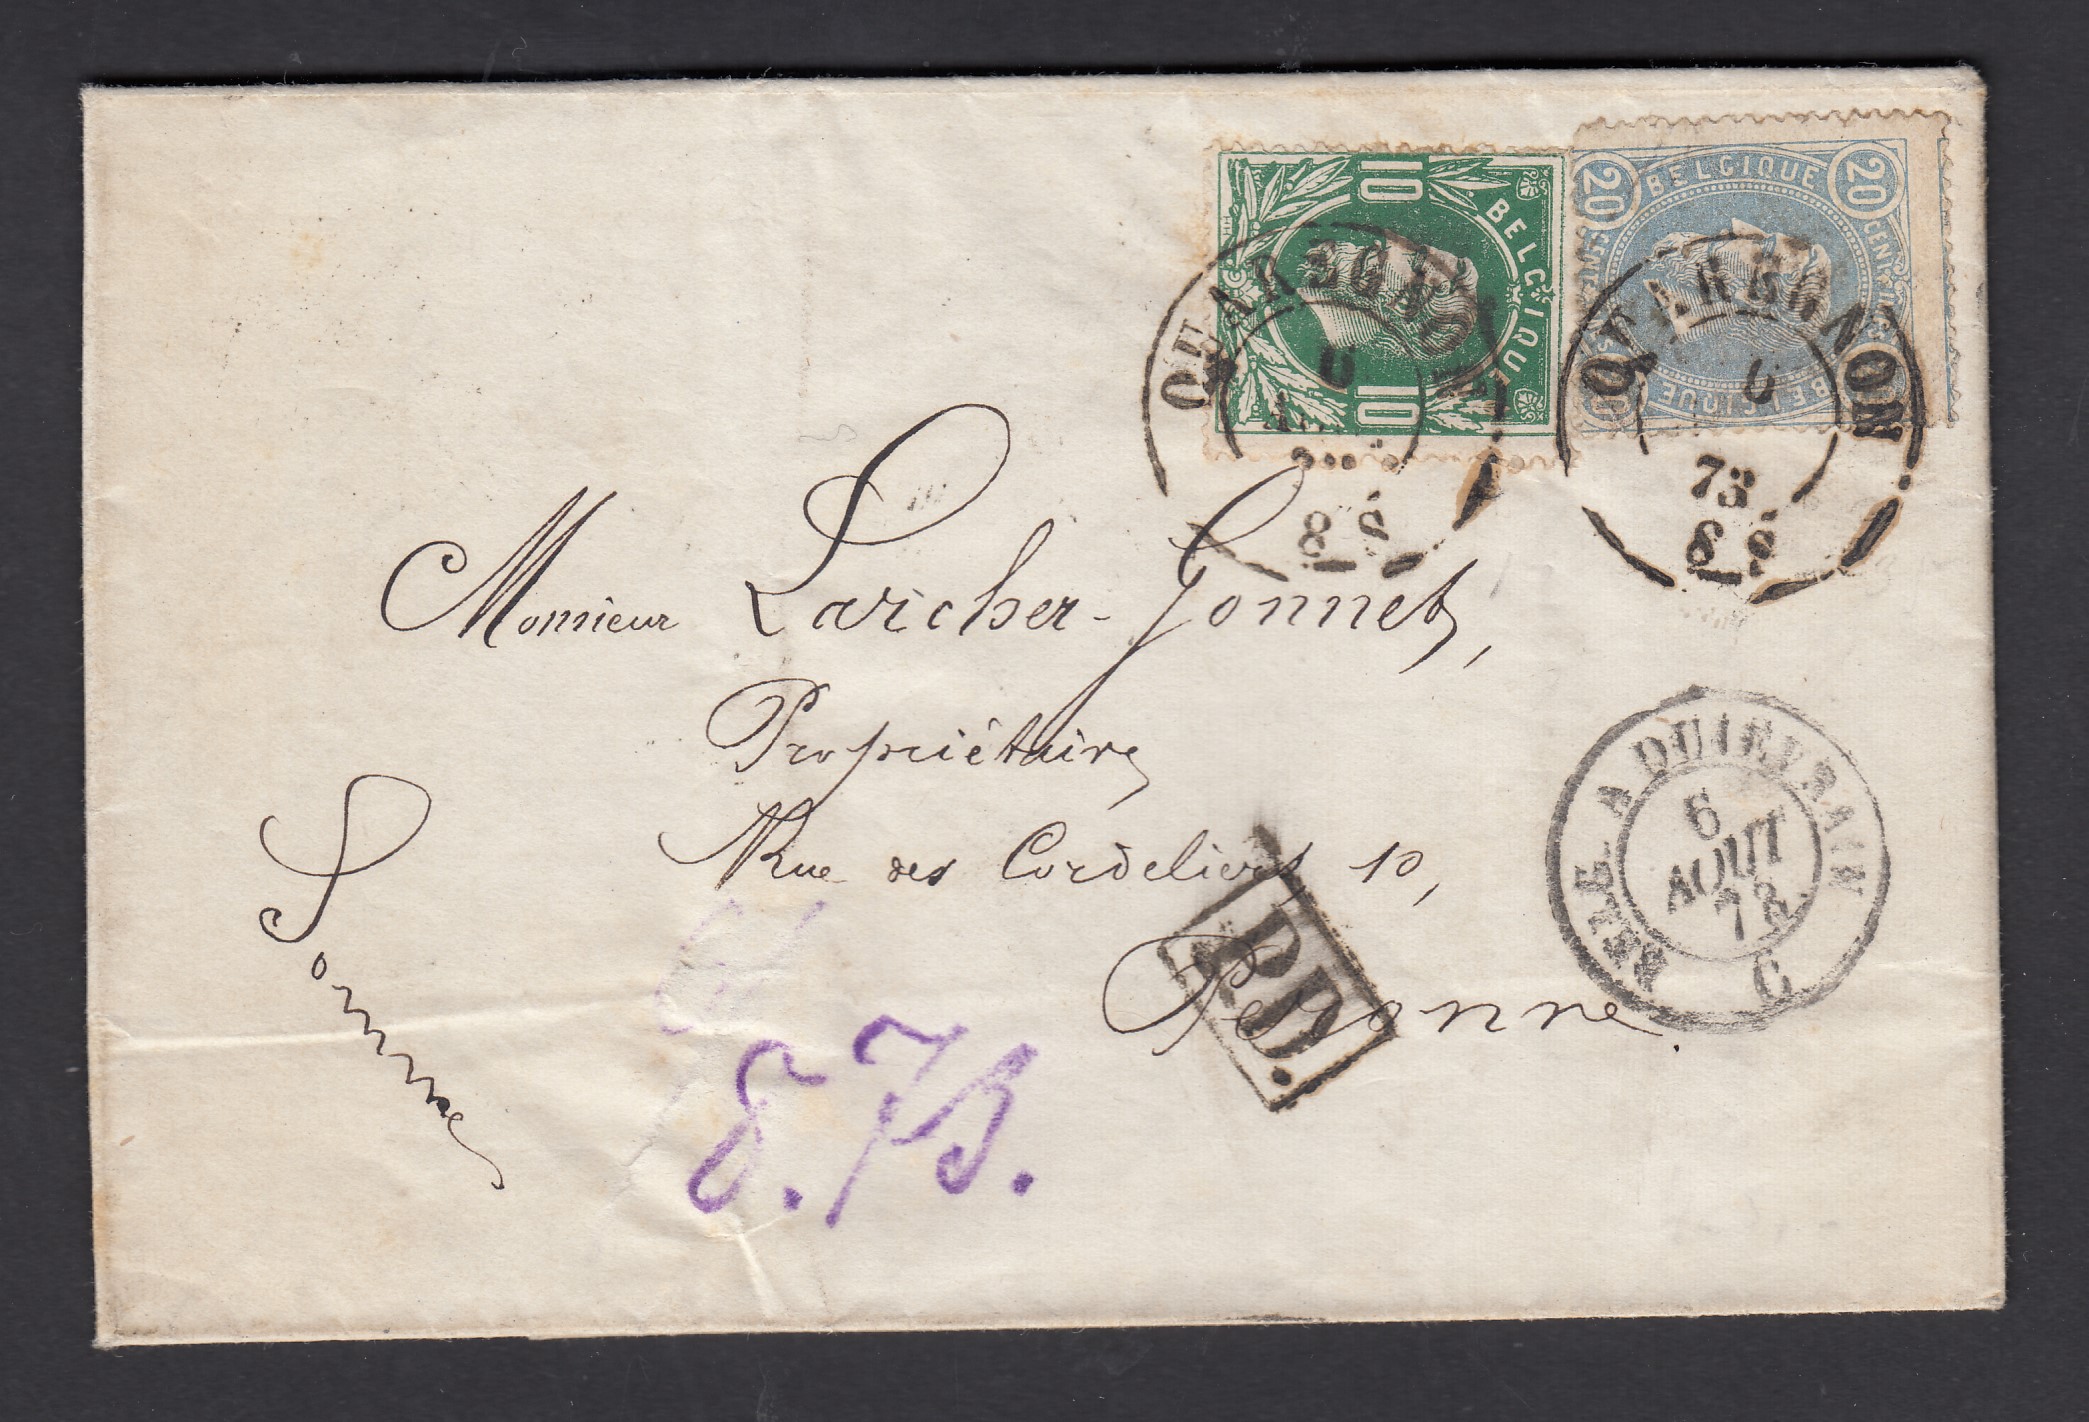 10 BELGIQUE 10
20 BELGIQUE 20
BELGIQUE
QUAREGNON
6
8 S
QUAREGNON
6
73
8 S
Monsieur Larcher-Gonnet,
Propriétaire
Rue des Cordeliers 10,
Peronne.
Somme
BELG. A QUIÉVRAIN
6
AOUT
73
C
PD.
8.73.